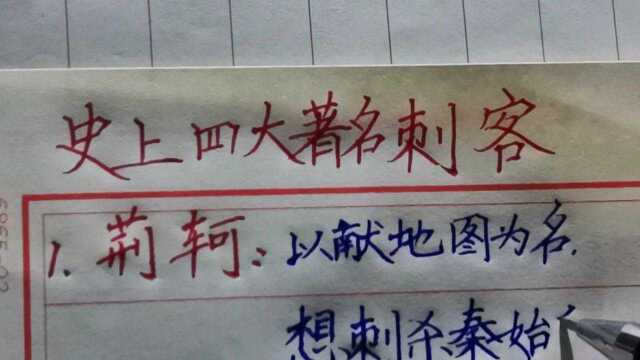 史上四大著名刺客
1. 荆轲：以献地图为名.
想刺杀秦始